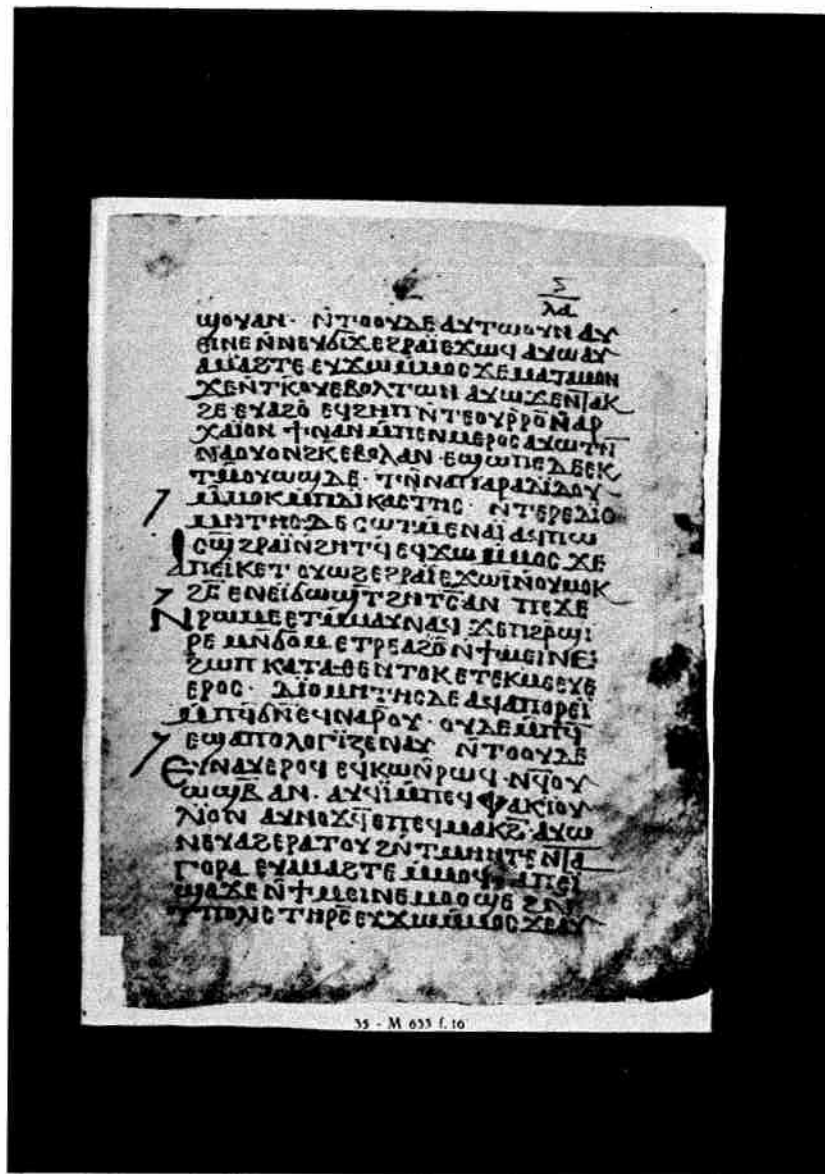 ⲗⲁ
ϣⲟⲩⲁⲛ· ⲛ̄ⲧⲟⲟⲩⲇⲉⲁⲩⲧⲱⲟⲩⲛⲁⲩ
ⲉⲓⲛⲉⲛ̄ⲛⲉⲩϭⲓϫⲉϩⲣⲁⲓ̈ⲉϫⲱϥⲁⲩⲱⲁⲩ
ⲁⲙⲁϩⲧⲉⲉⲩϫⲱⲙ̄ⲙⲟⲥϫⲉⲙⲁⲧⲁⲙⲟⲛ
ϫⲉⲛ̄ⲧⲕⲟⲩⲉⲃⲟⲗⲧⲱⲛⲁⲩⲱϫⲉⲛⲧⲁⲕ
ϩⲉ·ⲉⲩⲁϩⲟ̄ⲉϥϩⲏⲡⲛ̄ⲧⲉⲟⲩⲣ̄ⲣⲟⲛ̄ⲁⲣ
ⲭⲁⲓⲟⲛ ϯⲛⲁⲛⲙ̄ⲡⲉⲛⲙⲉⲣⲟⲥⲁⲩⲱⲧⲛ̄
ⲛⲁⲟⲩⲟⲛϩⲕ̄ⲉⲃⲟⲗⲁⲛ·ⲉϣⲱⲡⲉⲇⲉⲉⲕ
ⲧⲙ̄ⲟⲩⲱϣⲇⲉ· ⲧⲛ̄ⲛⲁⲡⲁⲣⲁⲇⲓⲇⲟⲩ
ⲙ̄ⲙⲟⲕⲙ̄ⲡⲇⲓⲕⲁⲥⲧⲏⲥ· ⲛ̄ⲧⲉⲣⲉⲇⲓⲟ
ⲙⲏⲧⲏⲥ·ⲇⲉⲥⲱⲧⲙ̄ⲉⲛⲁⲓ̈ⲁϥⲡⲱ
ⲥϣ̄ϩⲣⲁⲓ̈ⲛ̄ϩⲏⲧϥ̄ⲉϥϫⲱⲙ̄ⲙⲟⲥ ϫⲉ
ⲁⲡⲉⲓⲕⲉⲧⲟⲩⲱϩⲉϩⲣⲁⲓ̈ⲉϫⲱⲓ̈ⲛ̄ⲟⲩⲙⲟⲕ
ϩⲥ̄ ⲉⲛⲉⲓ̈ϭⲱϣⲧ̄ϩⲏⲧⲥ̄ⲁⲛ ⲡⲉϫⲉ
ⲛⲣⲱⲙⲉⲉⲧⲙ̄ⲙⲁⲩⲛⲁϥ ϫⲉⲡϩⲣ̄ϣⲓ
ⲣⲉ ⲙⲛ̄ϭⲟⲙⲉⲧⲣⲉⲁϩⲟ̄ⲛ̄ϯⲙⲉⲓⲛⲉⲓ
ϩⲱⲡ ⲕⲁⲧⲁⲑⲉⲛ̄ⲧⲟⲕⲉⲧⲉⲕⲙⲉⲉⲩⲉ
ⲉⲣⲟⲥ· ⲇⲓⲟⲙⲏⲧⲏⲥⲇⲉⲁϥⲁⲡⲟⲣⲉⲓ
ⲙ̄ⲡϥ̄ϭⲛ̄ⲉϥⲛⲁⲣ̄ⲟⲩ· ⲟⲩⲇⲉⲙ̄ⲡϥ̄
ⲉϣⲁⲡⲟⲗⲟⲅⲓⲍⲉⲛⲁⲩ ⲛ̄ⲧⲟⲟⲩⲇⲉ
ⲉⲩⲛⲁⲩⲉⲣⲟϥ ⲉϥⲕⲱⲛ̄ⲣⲱϥ·ⲛϥ̄ⲟⲩ
ⲱϣⲃ̄ ⲁⲛ· ⲁⲩϥⲓⲙ̄ⲡⲉϥⲫⲁⲕⲓⲟⲩ
ⲗⲓⲟⲛ ⲁⲩⲛⲟϫϥ̄ⲉⲡⲉϥⲙⲁⲕϩ̄·ⲁⲩⲱ
ⲛⲉⲩⲁϩⲉⲣⲁⲧⲟⲩϩⲛ̄ⲧⲙⲏⲧⲉⲛ̄ⲧⲁ
ⲅⲟⲣⲁ ⲉⲩⲁⲙⲁϩⲧⲉ ⲙ̄ⲙⲟϥ·ⲁⲡⲉⲓ
ϣⲁϫⲉⲛ̄ϯⲙⲉⲓⲛⲉⲙⲟⲟϣⲉϩⲛ̄
ⲧⲡⲟⲗⲓⲥⲧⲏⲣⲥ̄ⲉⲩϫⲱⲙ̄ⲙⲟⲥϫⲉⲁⲩ
35 - M 633 f. 16